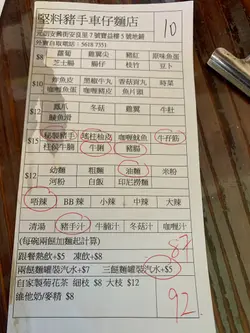 堅料豬手車仔麵店
元朗安興街安良里7號寶益樓5號地舖
外賣自取電話：5618 7351
10
$8 蘿蔔 雞翼尖 豬紅 原味魚蛋
芝士腸 腸仔 枝竹 豆卜
$10 炸魚皮 黑椒牛丸 香菇貢丸 時菜
咖喱豬皮 魚片頭
$12 鳳爪 冬菇 雞翼 牛肚
鯪魚滑
$15 秘製豬手 瑤柱柚皮 咖喱魷魚 牛孖筋
柱侯牛腩 牛脷 豬腸
$12 幼麵 粗麵 油麵 米粉
河粉 白飯 印尼撈麵
唔辣 BB辣 小辣 中辣 大辣
清湯 豬手汁 牛腩汁 冬菇汁 咖喱汁
(每碗兩餸加麵起計算)
87
跟餐熱飲+$5 凍飲+$8
兩餸麵罐裝汽水+$7 三餸麵罐裝汽水+$5
自家製菊花茶 細枝 $8 大枝 $12
維他奶/麥精 $8
92